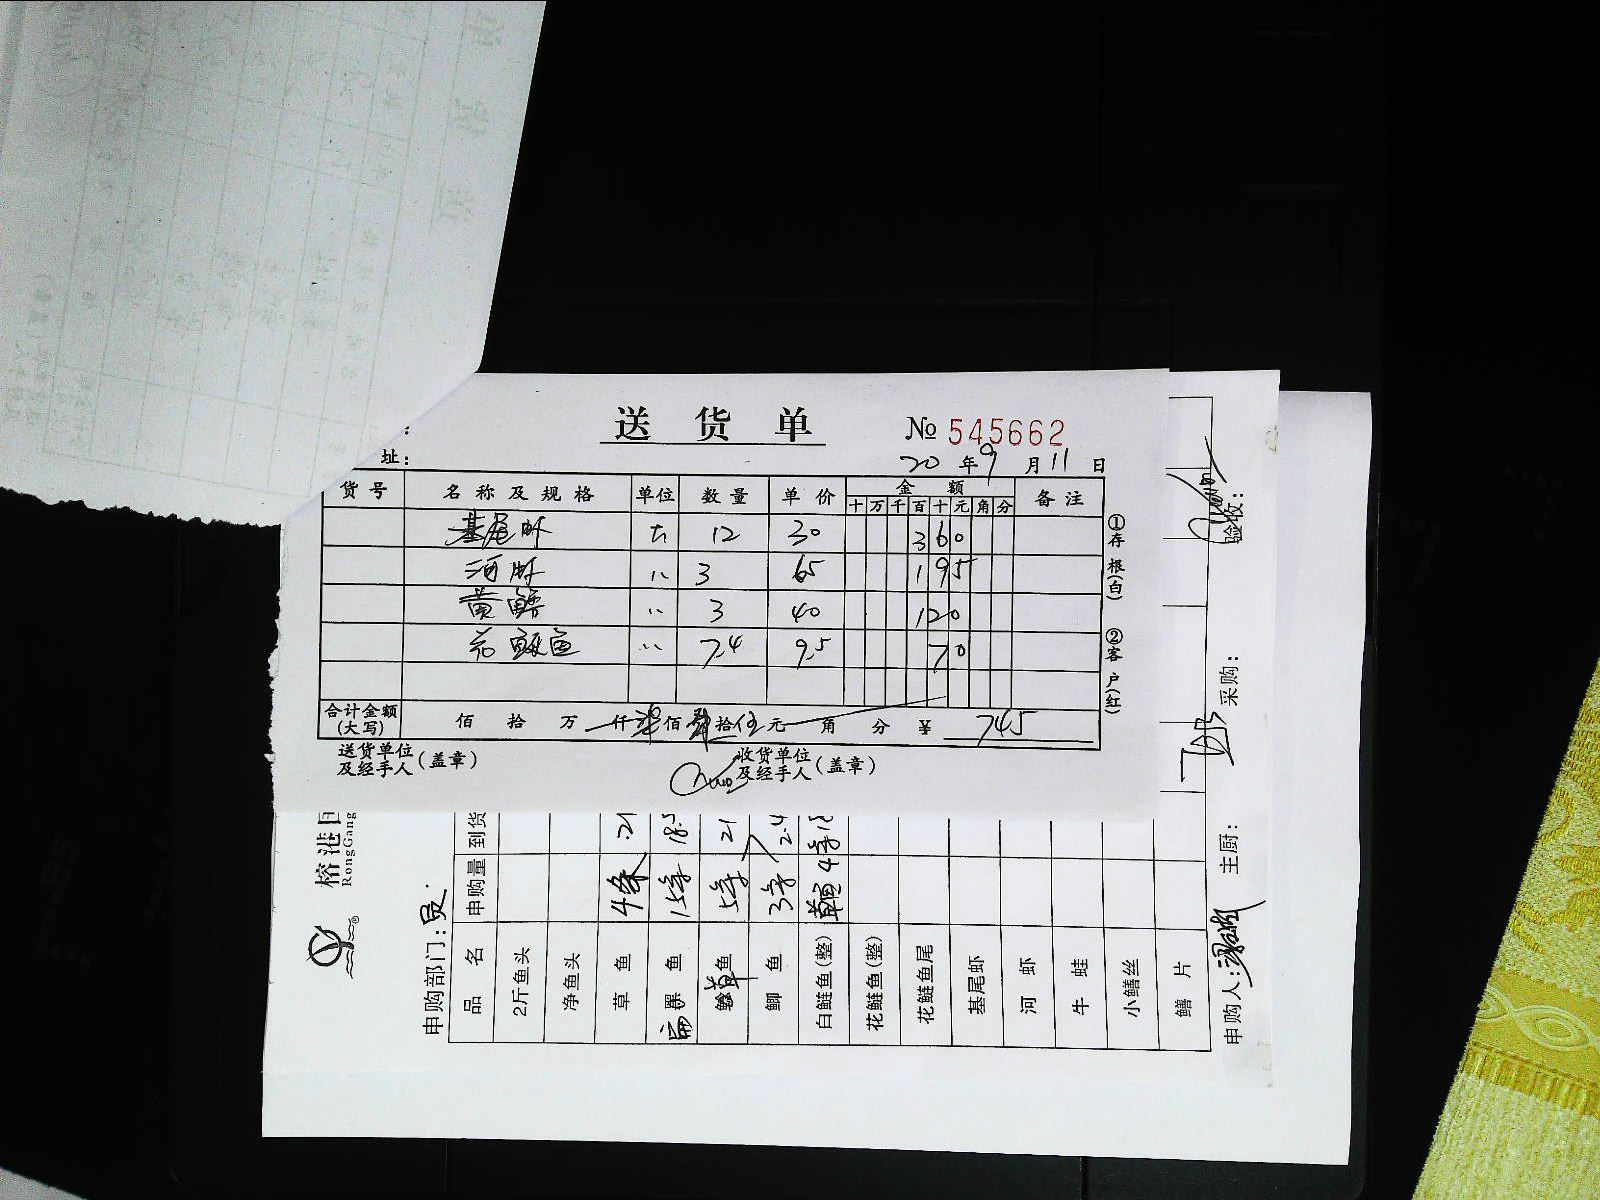 送 货 单 № 545662
址： 20 年 9 月 11 日
货号 名称及规格 单位 数量 单价 金额 备注
十 万 千 百 十 元 角 分
基尾虾 斤 12 30 360
河虾 〃 3 65 195
黄鳝 〃 3 40 120
花鲢鱼 〃 7.4 9.5 70
合计金额 (大写) 佰 拾 万 仟 柒 佰 肆 拾 伍 元 角 分 ¥ 745
送货单位 及经手人 (盖章) 收货单位 及经手人 (盖章)
①存根(白) ②客户(红)
RongGang
申购部门：
品名 申购量 到货
2斤鱼头
净鱼头
草鱼 4条 21
鱼 15条 18.5
草鱼 5条 21
鲫鱼 3条 2.4
白鲢鱼(整) 草鱼 4条
花鲢鱼(整)
花鲢鱼尾
基尾虾
河虾
牛蛙
小鳝丝
鳝片
申购人： 主厨： 采购： 验收：